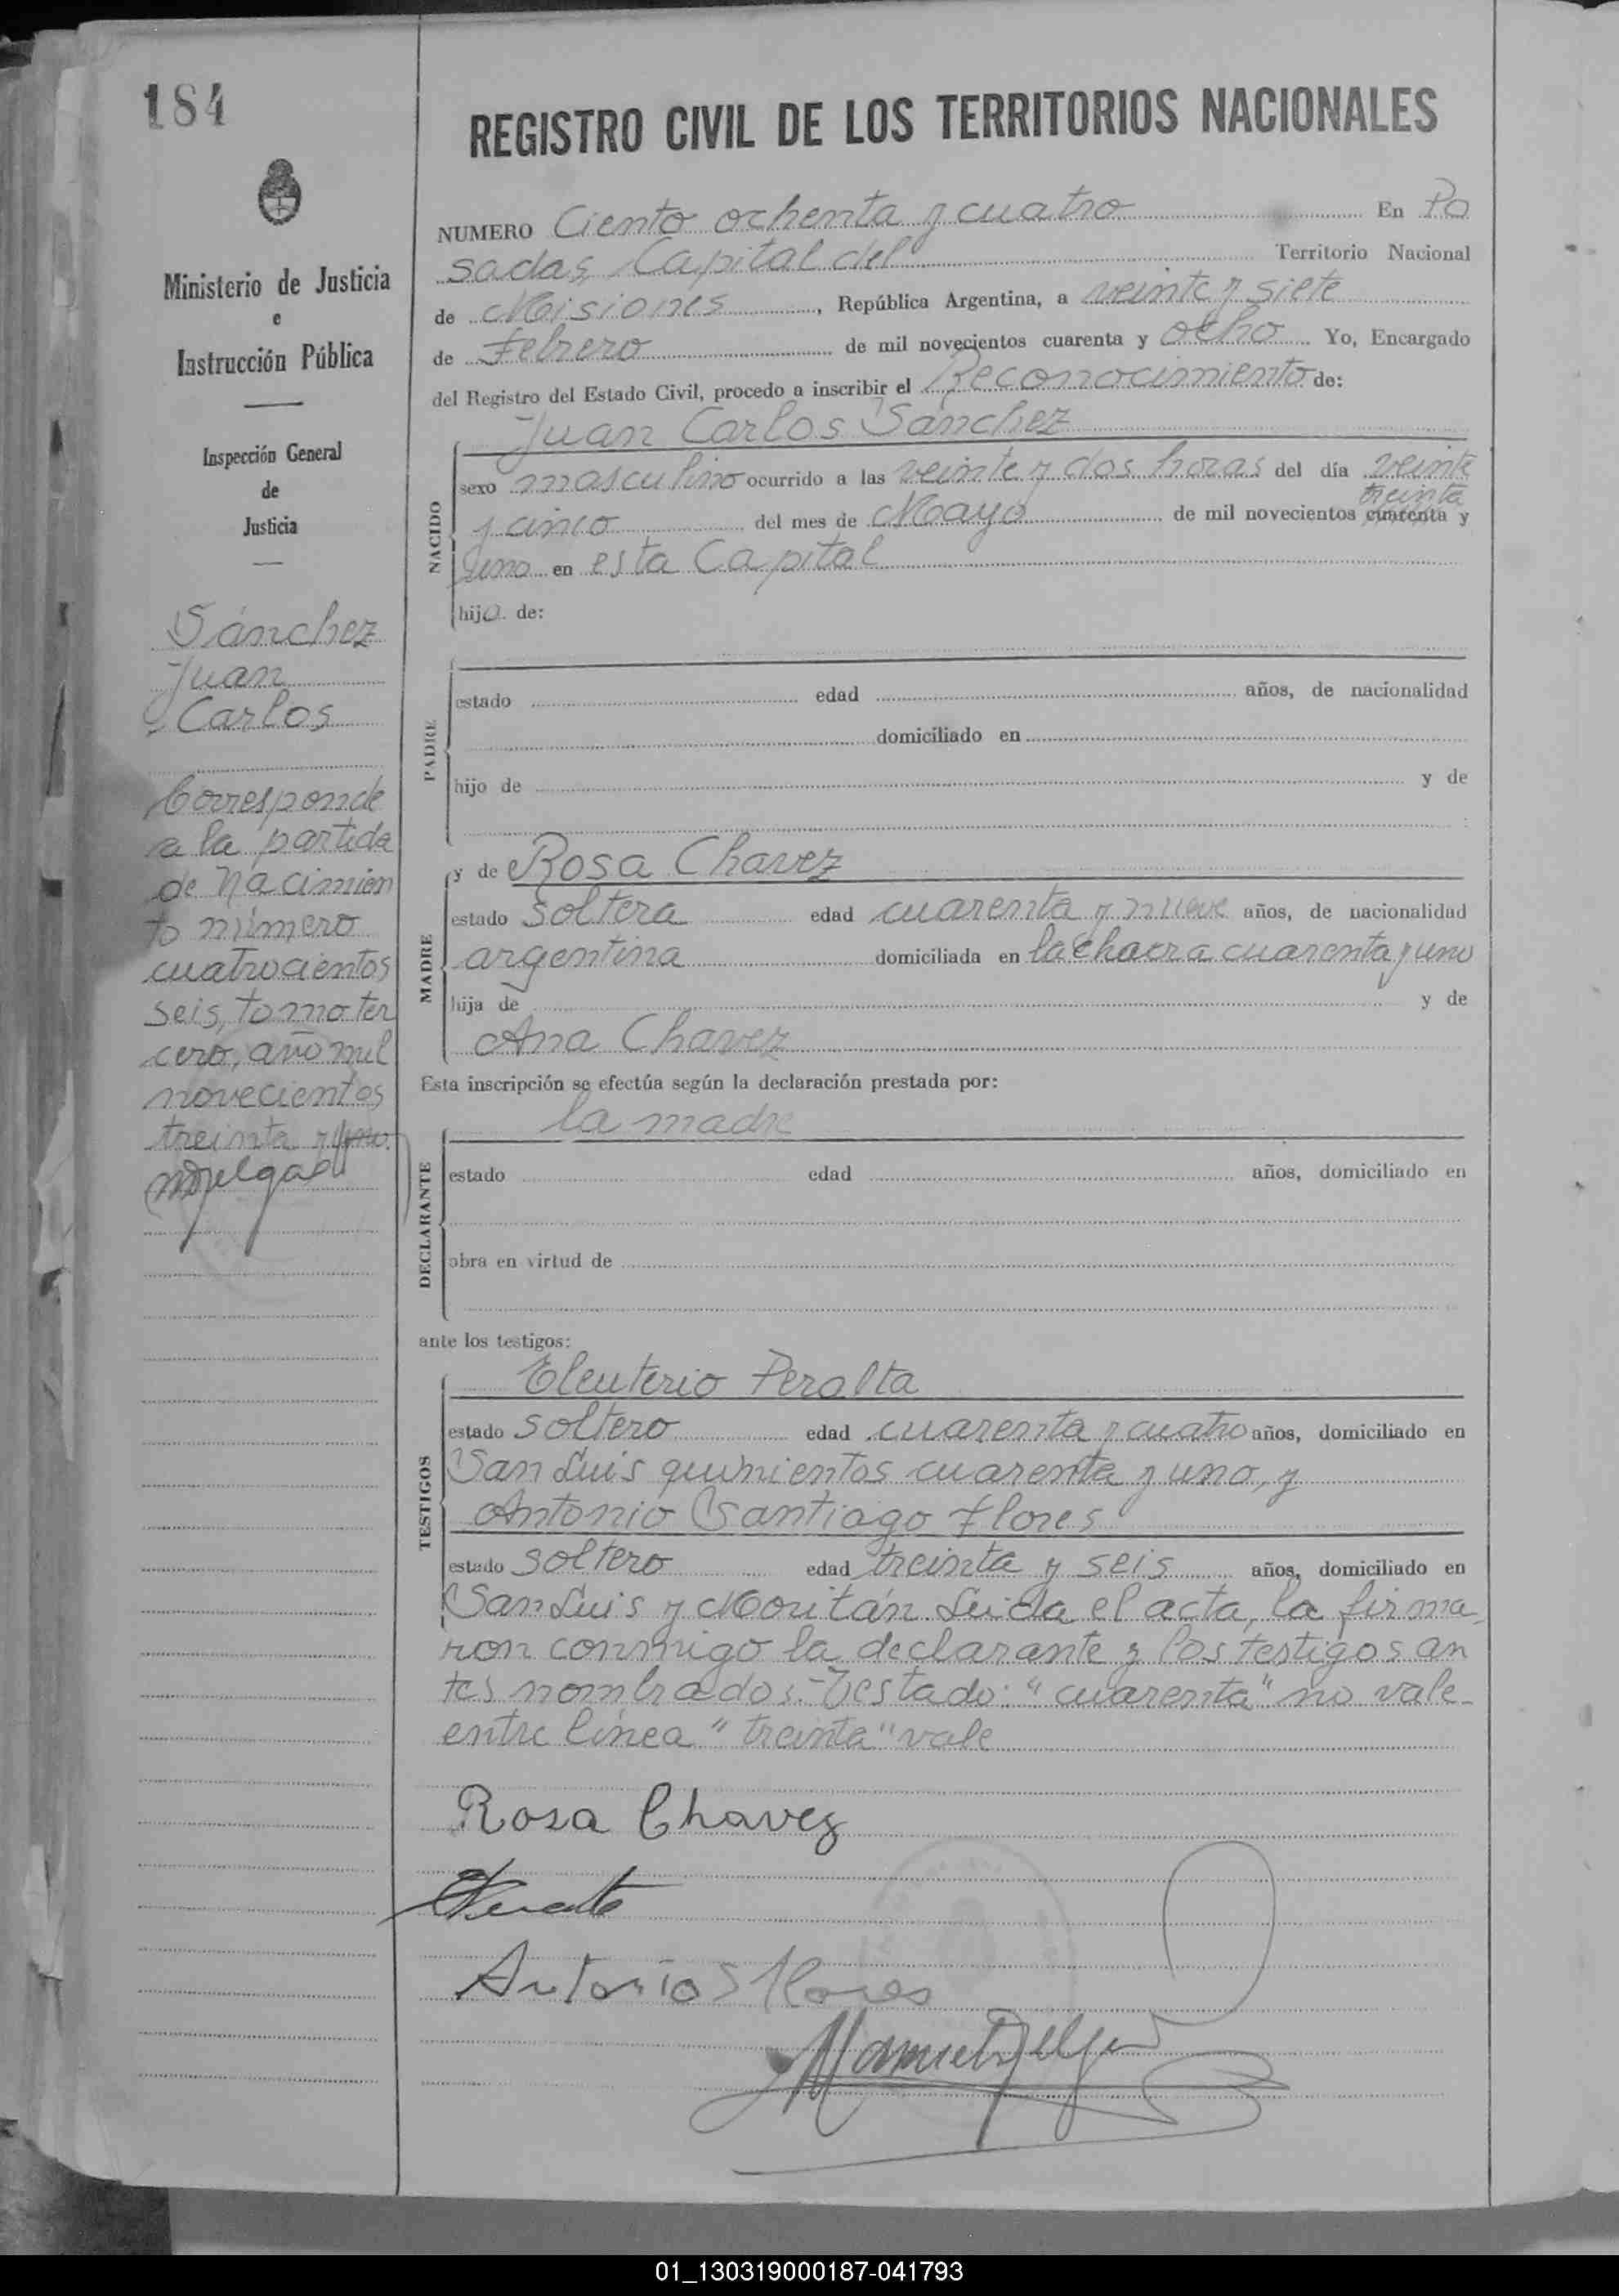 184
REGISTRO CIVIL DE LOS TERRITORIOS NACIONALES
Ministerio de Justicia
e
Instrucción Pública
Inspección General
de
Justicia
Sánchez
Juan
Carlos
Corresponde
a la partida
de nacimien
to número
cuatrocientos
seis, tomo ter
cero, año mil
novecientos
treinta y uno.
NUMERO Ciento ochenta y cuatro En Po
sadas, Capital del Territorio Nacional
de Misiones, República Argentina, a veinte y siete
de Febrero de mil novecientos cuarenta y ocho Yo, Encargado
del Registro del Estado Civil, procedo a inscribir el Reconocimiento de:
Juan Carlos Sánchez
NACIDO
sexo masculino ocurrido a las veinte y dos horas del día veinte
treinta
y cinco del mes de Mayo de mil novecientos cuarenta y
uno en esta Capital
hijo de:
PADRE
estado edad años, de nacionalidad
domiciliado en
hijo de y de
MADRE
y de Rosa Chavez
estado soltera edad cuarenta y nueve años, de nacionalidad
argentina domiciliada en la chacra cuarenta y uno
hija de y de
Ana Chavez
Esta inscripción se efectúa según la declaración prestada por:
la madre
DECLARANTE
estado edad años, domiciliado en
obra en virtud de
ante los testigos:
Eleuterio Peralta
TESTIGOS
estado soltero edad cuarenta y cuatro años, domiciliado en
San Luis quinientos cuarenta y uno, y
Antonio Santiago Flores
estado soltero edad treinta y seis años, domiciliado en
San Luis y Moritán. Leida el acta, la firma
ron conmigo la declarante y los testigos an
tes nombrados.- Testado: "cuarenta" no vale-
entre línea "treinta" vale
Rosa Chavez
Antonio S Flores
01_130319000187-041793